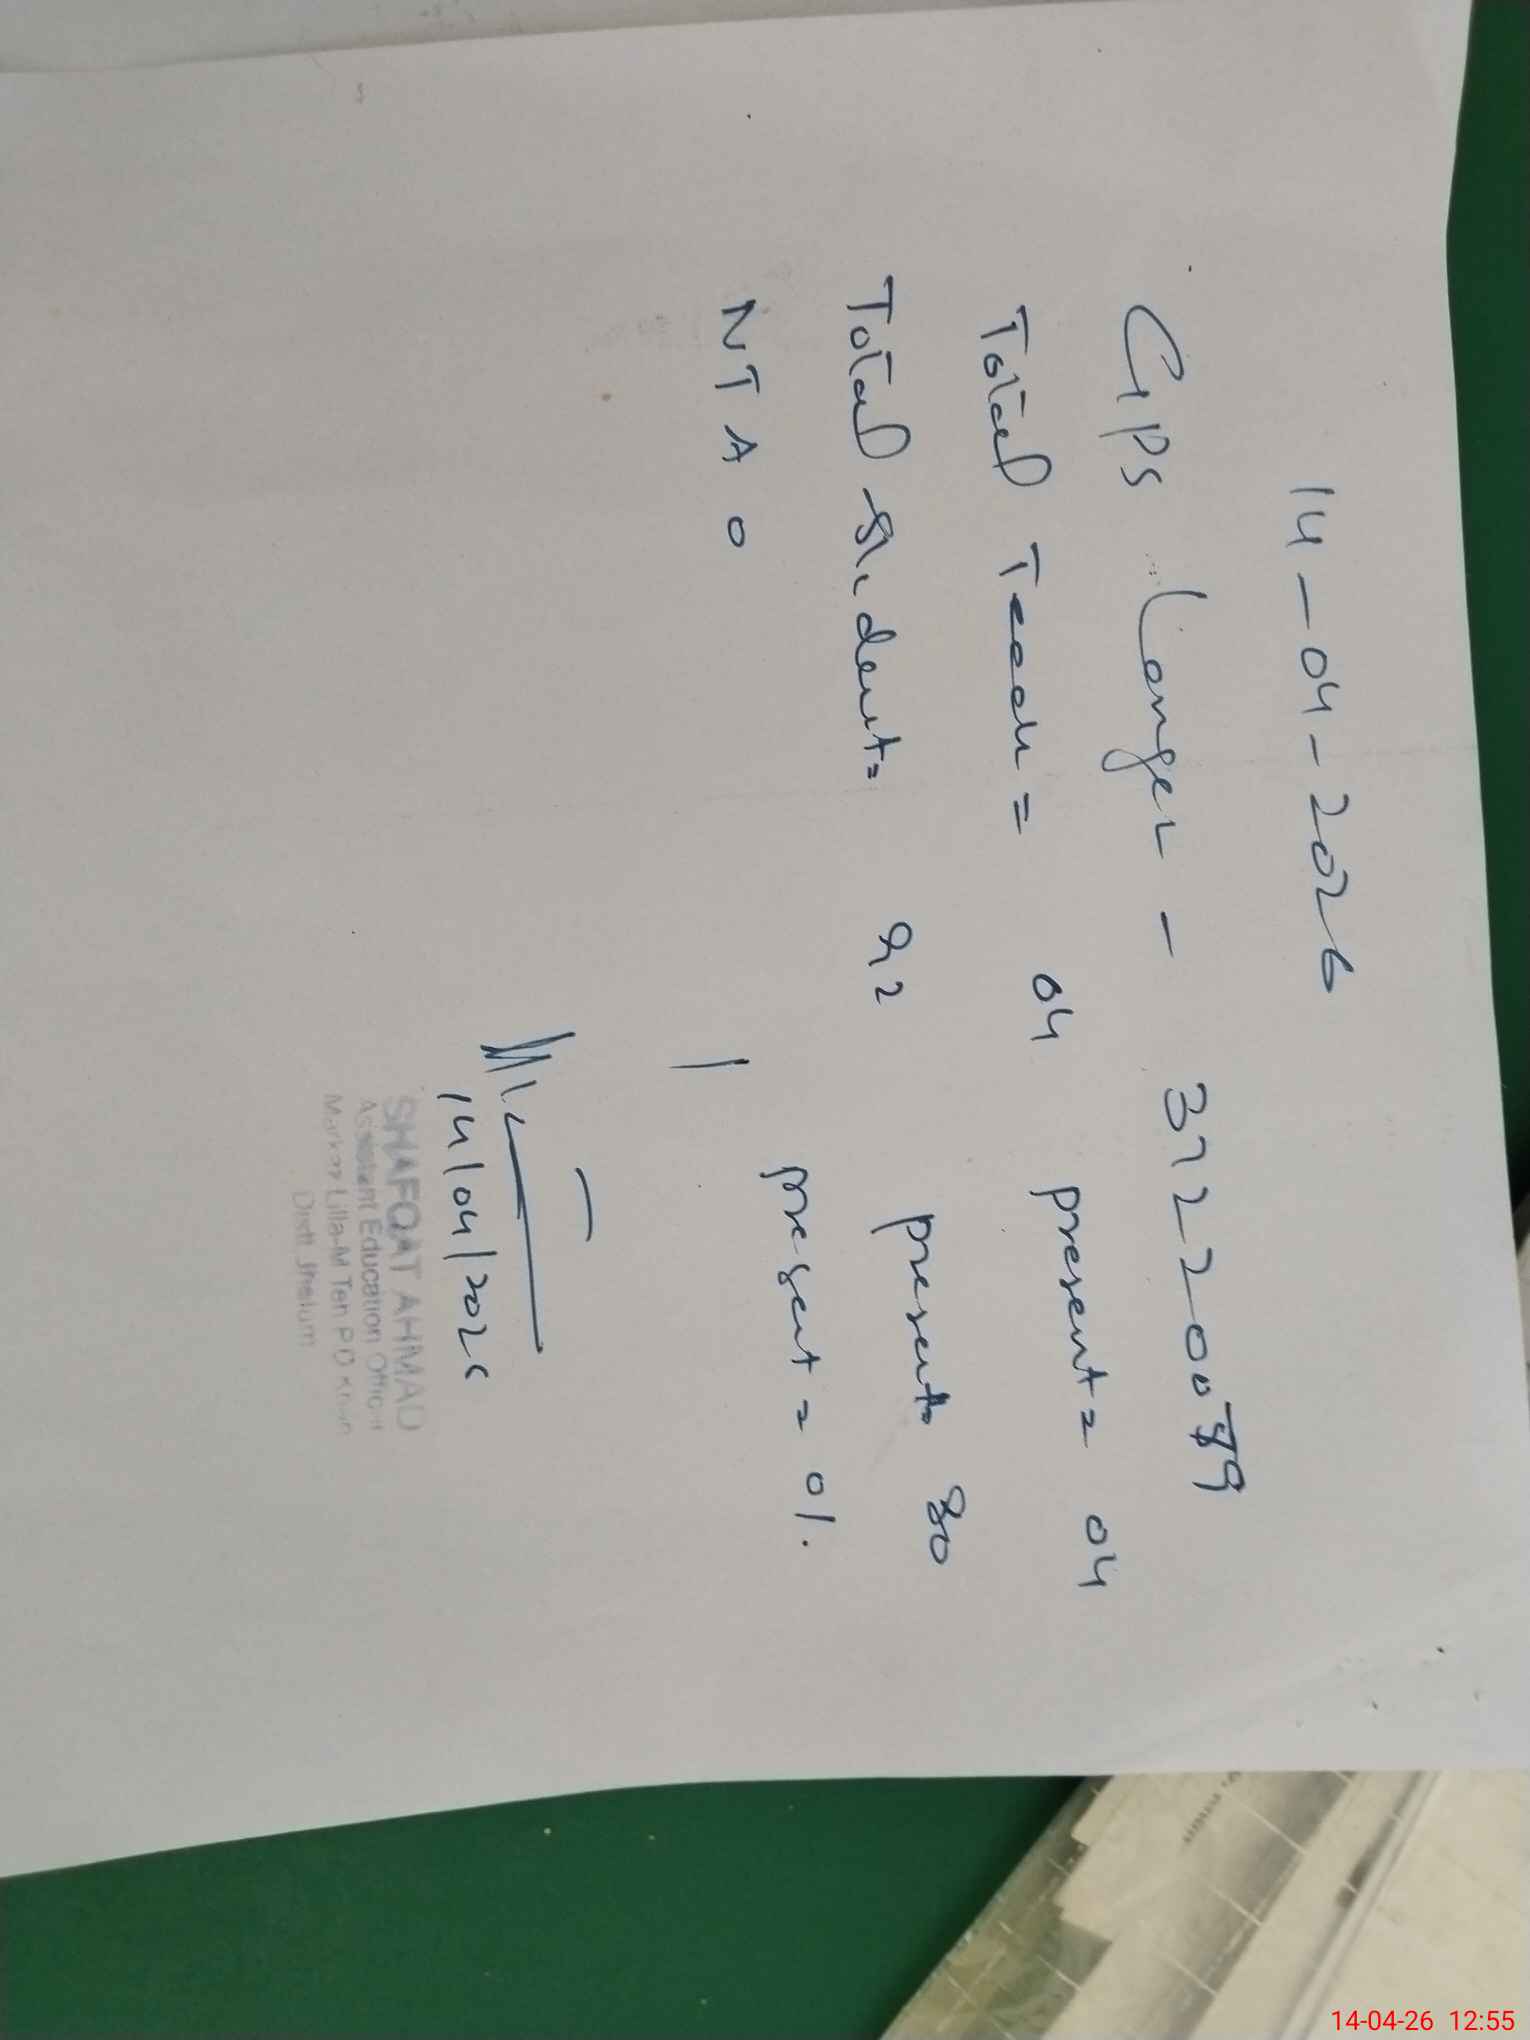 14-04-2026
GPS Langer - 37220089
Total Teach = 04 present = 04
Total Student = 92 present = 80
NTA 0 1 present = 01.
14/04/2026
SHAFQAT AHMAD
Assistant Education Officer
Markaz Lilla-M Teh P D Khan
Distt Jhelum
14-04-26 12:55